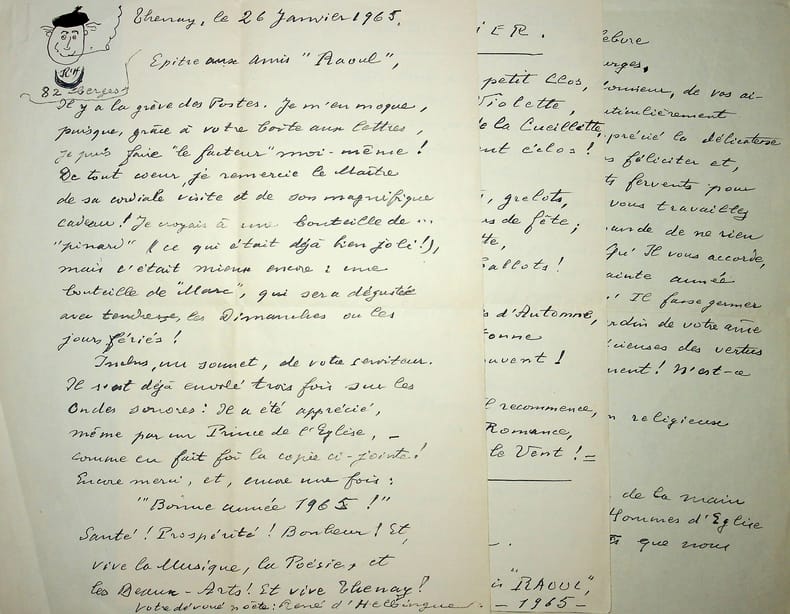 Thenay, le 26 Janvier 1965.
Epitre aux amis "Raoul",
R H
82
Il y a la grève des Postes. Je m'en moque,
puisque, grâce à votre boîte aux lettres,
je puis faire "le facteur" moi-même !
De tout coeur, je remercie le Maître
de sa cordiale visite et de son magnifique
cadeau ! Je croyais à une bouteille de ...
"pinard" (ce qui était déjà bien joli !),
mais c'était mieux encore : une
bouteille de "Marc", qui sera dégustée
avec tendresse, les Dimanches ou les
jours fériés !
Inclus, un sonnet, de votre serviteur.
Il s'est déjà envolé trois fois sur les
Ondes sonores : Il a été apprécié,
même par un Prince de l'Eglise, -
comme en fait foi la copie ci-jointe !
Encore merci, et, encore une fois :
"Bonne année 1965 !"
Santé ! Prospérité ! Bonheur ! Et,
vive la Musique, la Poésie, et
les Beaux-Arts ! Et vive Thenay !
Votre dévoué poète : René d'Helbingue
IER.
petit Clos,
Violette,
de la Cueillette,
ent éclos !
, grelots,
rs de fête ;
tte,
Ballots !
s d'Automne,
tonne
ouvent !
l recommence,
Romance,
le Vent ! =
is "RAOUL",
- 1965 -
ebvre
urges,
onsieur, de vos ai-
rticulièrement
précié la délicatesse
s féliciter et,
ts fervents pour
vous travaillez
ande de ne rien
Qu'Il vous accorde,
ainte année
! Il fasse germer
rdin de votre âme
icieuses des vertus
ment ! N'est-ce
n religieux
de la main
Hommes d'Eglise
ts que nous